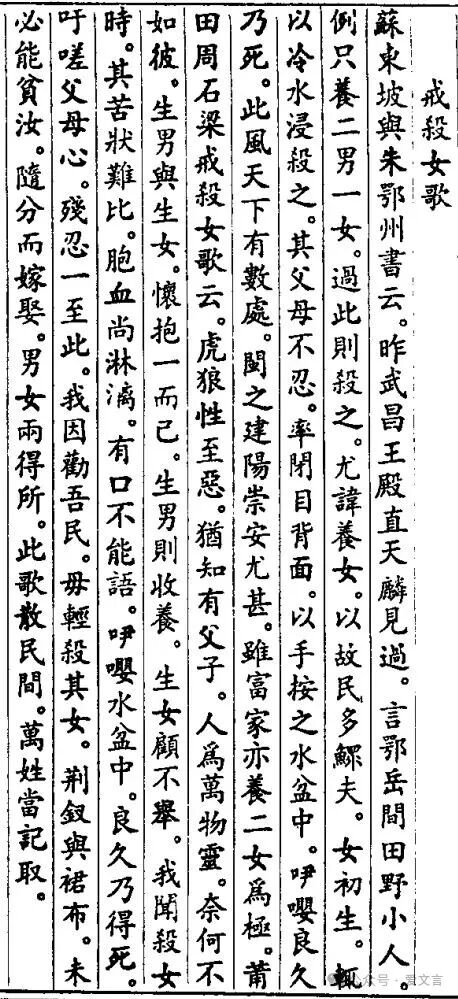 戒殺女歌
蘇東坡與朱鄂州書云。昨武昌王殿直天麟見過。言鄂岳間田野小人。
例只養二男一女。過此則殺之。尤諱養女。以故民多鰥夫。女初生。輒
以冷水浸殺之。其父母不忍。率閉目背面。以手按之水盆中。咿嚶良久
乃死。此風天下有數處。閩之建陽崇安尤甚。雖富家亦養二女爲極。莆
田周石梁戒殺女歌云。虎狼性至惡。猶知有父子。人爲萬物靈。奈何不
如彼。生男與生女。懷抱一而已。生男則收養。生女顧不舉。我聞殺女
時。其苦狀難比。胞血尚淋漓。有口不能語。咿嚶水盆中。良久乃得死。
吁嗟父母心。殘忍一至此。我因勸吾民。毋輕殺其女。荆釵與裙布。未
必能貧汝。隨分而嫁娶。男女兩得所。此歌散民間。萬姓當記取。
公众号 · 爱文言